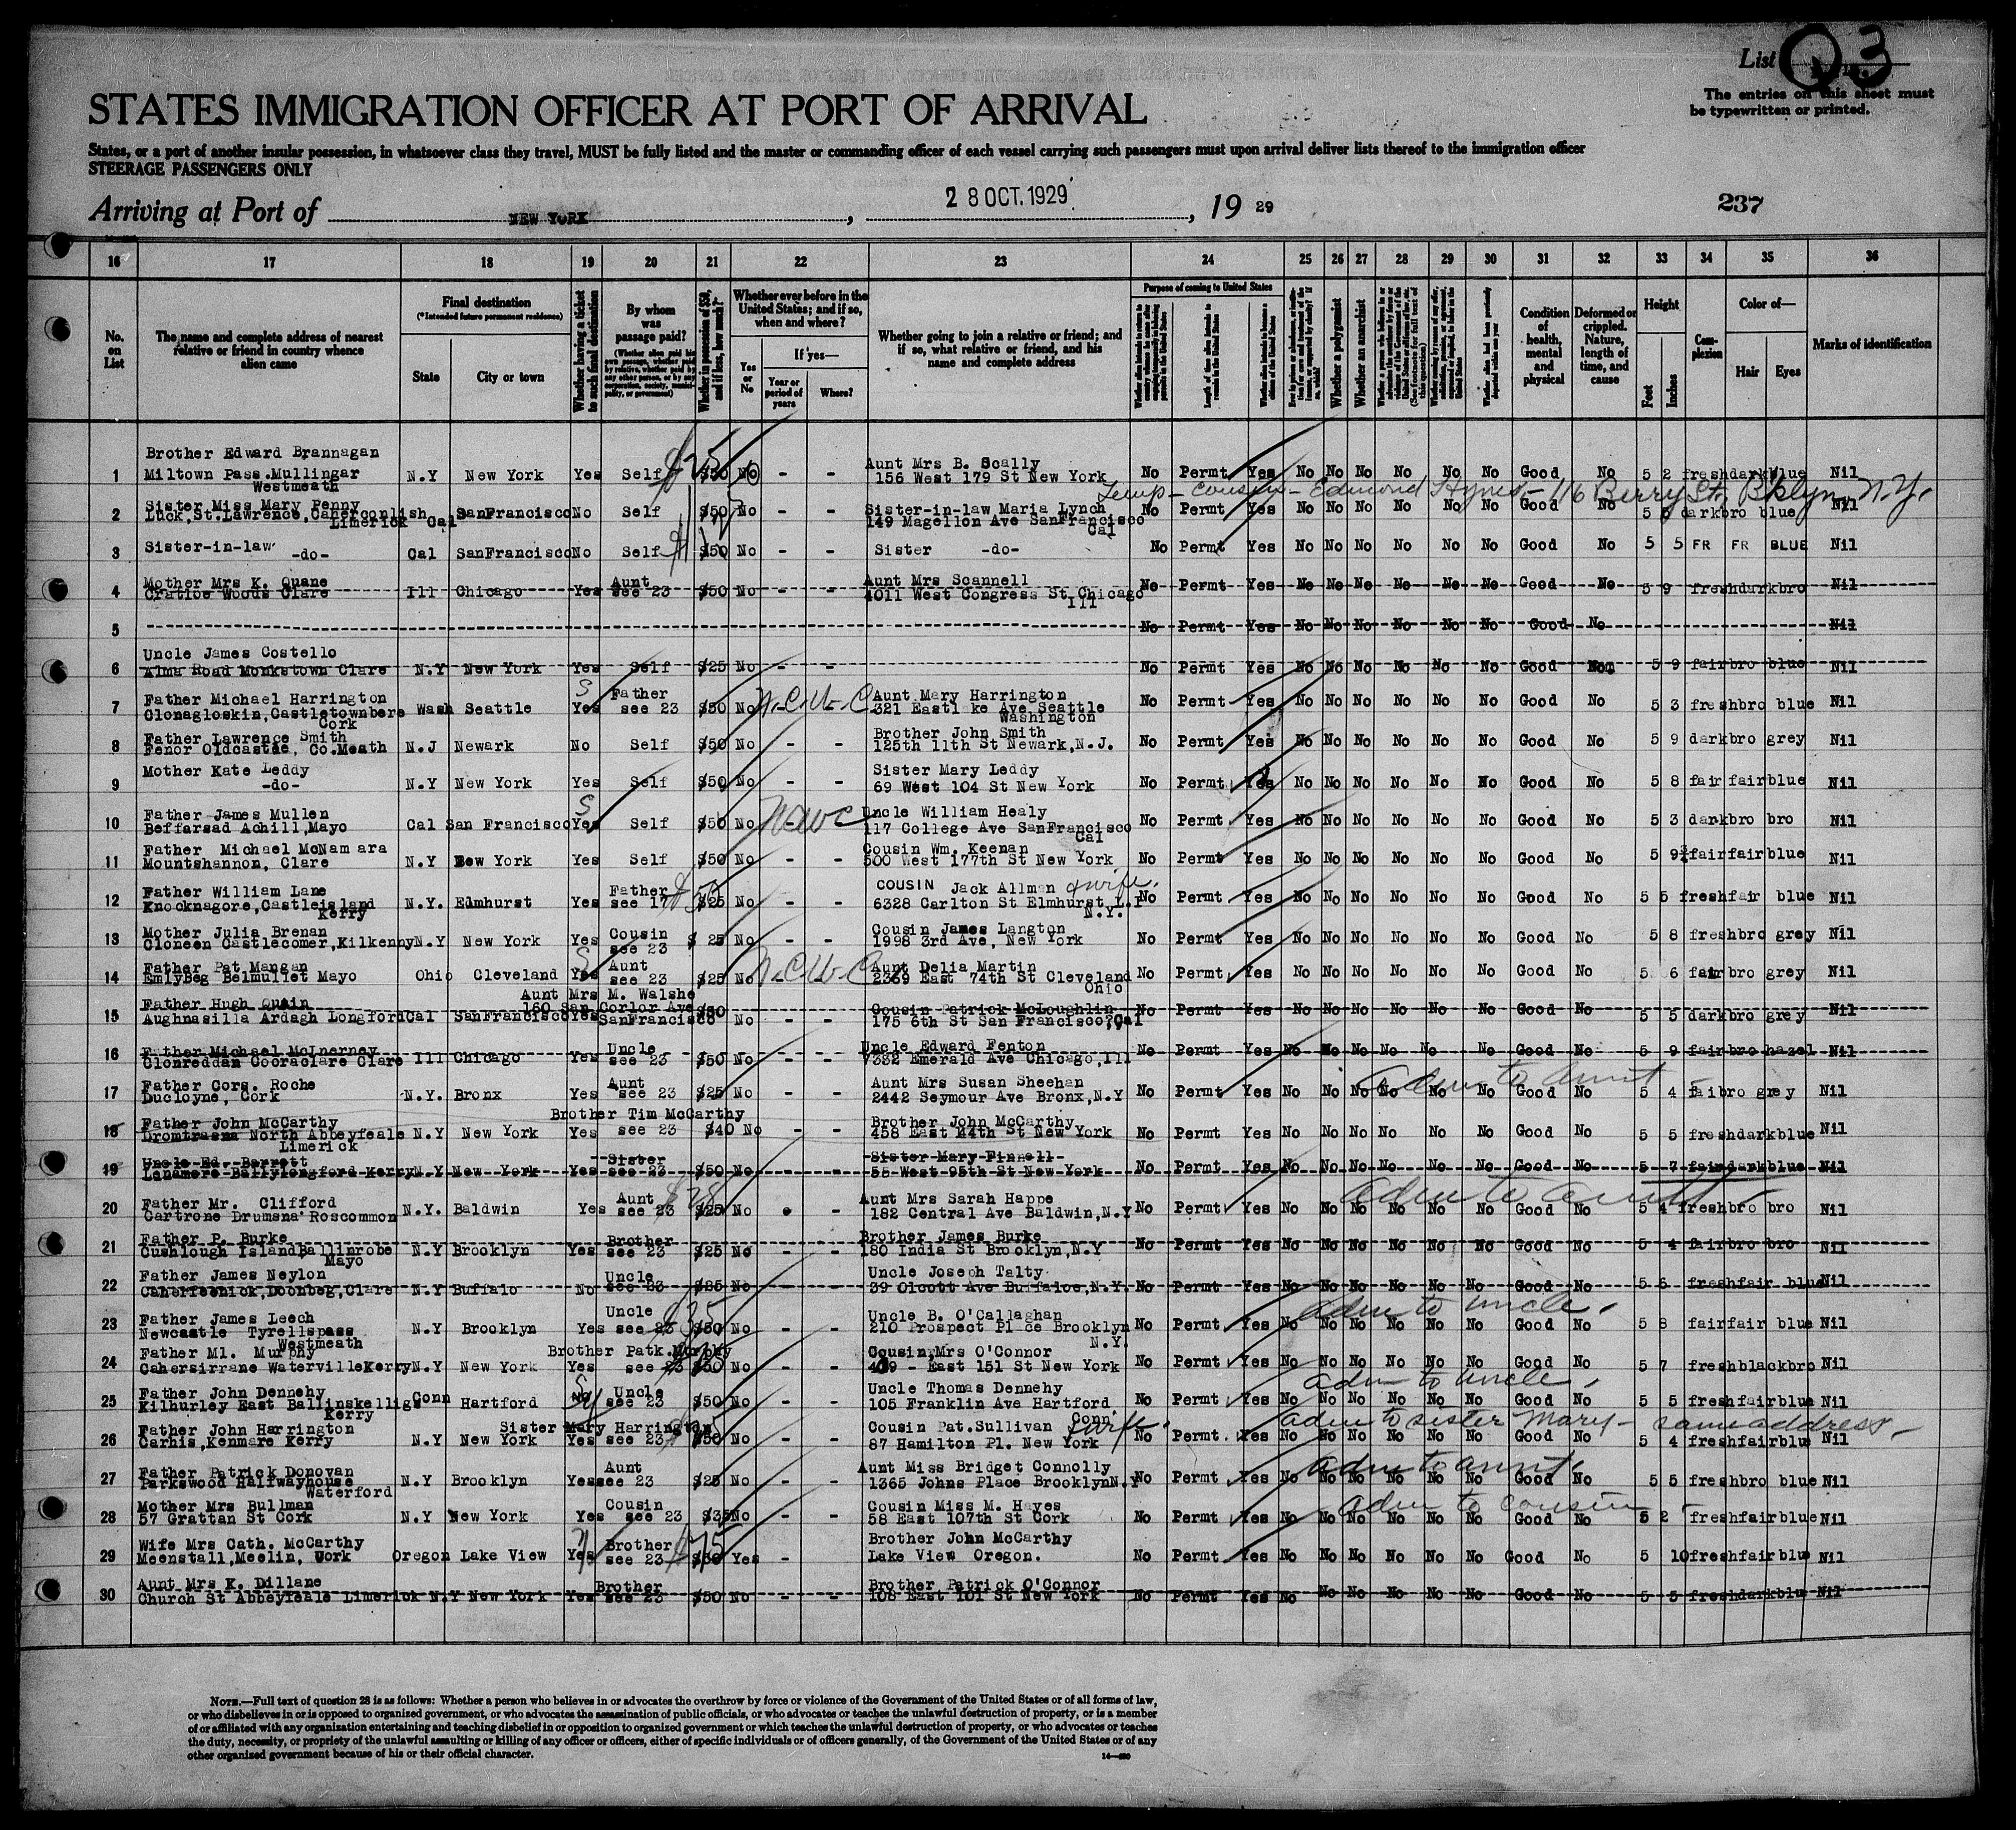 List Q 3
The entries on this sheet must
be typewritten or printed.
STATES IMMIGRATION OFFICER AT PORT OF ARRIVAL
States, or a port of another insular possession, in whatsoever class they travel, MUST be fully listed and the master or commanding officer of each vessel carrying such passengers must upon arrival deliver lists thereof to the immigration officer
STEERAGE PASSENGERS ONLY
Arriving at Port of NEW YORK, 28 OCT. 1929, 19 29
237
16 17 18 19 20 21 22 23 24 25 26 27 28 29 30 31 32 33 34 35 36
No. on List
The name and complete address of nearest relative or friend in country whence alien came
Final destination
(*Intended future permanent residence)
State
City or town
Whether having a ticket to such final destination
By whom was passage paid?
Whether in possession of $50, and if less, how much?
Whether ever before in the United States; and if so, when and where?
Yes or No
If yes—
Year or period of years
Where?
Whether going to join a relative or friend; and if so, what relative or friend, and his name and complete address
Purpose of coming to United States
Whether a polygamist
Whether an anarchist
Condition of health, mental and physical
Deformed or crippled. Nature, length of time, and cause
Height
Feet
Inches
Complexion
Color of—
Hair
Eyes
Marks of identification
1 Brother Edward Brannagan Miltown Pass.Mullingar Westmeath N.Y New York Yes Self $25 $50 No - - Aunt Mrs B. Scally 156 West 179 St New York No Permt Yes No No No No No No Good No 5 2 fresh dark blue Nil
Temp - Cousin - Edmond Hynes - 116 Berry St, Bklyn, N.Y.
2 Sister Miss Mary Penny Luck,St.Lawrence,Caherconlish Limerick Cal SanFrancisco No Self $50 No - - Sister-in-law Maria Lynch 149 Magellon Ave SanFrancisco Cal No Permt Yes No No No No No No Good No 5 5 dark bro blue Nil
3 Sister-in-law -do- Cal SanFrancisco No Self $50 No - - Sister -do- No Permt Yes No No No No No No Good No 5 5 FR FR BLUE Nil
4 Mother Mrs K. Quane Cratloe Woods Clare Ill Chicago Yes Aunt see 23 $50 No - - Aunt Mrs Scannell 4011 West Congress St Chicago Ill No Permt Yes No No No No No No Good No 5 9 fresh dark bro Nil
5 No Permt Yes No No No No No No Good No Nil
6 Uncle James Costello Alma Road Monkstown Clare N.Y New York Yes Self $25 No - - No Permt Yes No No No No No No Good Non 5 9 fair bro blue Nil
7 Father Michael Harrington Clonagloskin,Castletownbere Cork Wash Seattle S Yes Father see 23 $50 No N.C.U.C Aunt Mary Harrington 321 Eastl ke Ave Seattle Washington No Permt Yes No No No No No No Good No 5 3 fresh bro blue Nil
8 Father Lawrence Smith Fenor Oldcastle, Co.Meath N.J Newark No Self $50 No - - Brother John Smith 125th 11th St Newark,N.J. No Permt Yes No No No No No No Good No 5 9 dark bro grey Nil
9 Mother Kate Leddy -do- N.Y New York Yes Self $50 No - - Sister Mary Leddy 69 West 104 St New York No Permt Yes No No No No No No Good No 5 8 fair fair blue Nil
10 Father James Mullen Beffarsad Achill,Mayo Cal San Francisco S Yes Self $50 No Uncle William Healy 117 College Ave SanFrancisco Cal No Permt Yes No No No No No No Good No 5 3 dark bro bro Nil
11 Father Michael McNamara Mountshannon, Clare N.Y New York Yes Self $50 No - - Cousin Wm. Keenan 500 West 177th St New York No Permt Yes No No No No No No Good No 5 9½ fair fair blue Nil
12 Father William Lane Knocknagore,Castleisland Kerry N.Y. Elmhurst Yes Father see 17 $25 No - - COUSIN Jack Allman & wife. 6328 Carlton St Elmhurst L.I N.Y. No Permt Yes No No No No No No Good No 5 5 fresh fair blue Nil
13 Mother Julia Brenan Cloneen Castlecomer,Kilkenny N.Y New York Yes Cousin see 23 $ 25 No - - Cousin James Langton 1998 3rd Ave, New York No Permt Yes No No No No No No Good No 5 8 fresh bro grey Nil
14 Father Pat Mangan EmlyBeg Belmullet Mayo Ohio Cleveland S Yes Aunt see 23 $25 No N.C.U.C Aunt Delia Martin 2369 East 74th St Cleveland Ohio No Permt Yes No No No No No No Good No 5 6 fair bro grey Nil
15 Father Hugh Quain Aughnasilla Ardagh Longford Cal SanFrancisco Yes Aunt Mrs M. Walshe 160 San Carlor Ave SanFrancisco $50 No - - Cousin Patrick McLoughlin 175 6th St San Francisco,Cal No Permt Yes No No No No No No Good No 5 5 dark bro grey Nil
16 Father Michael McInerney Clonreddan Cooraclare Clare Ill Chicago Yes Uncle see 23 $50 No - - Uncle Edward Fenton 7332 Emerald Ave Chicago,Ill No Permt Yes No No No No No No Good No 5 9 fair bro hazel Nil
adm to aunt
17 Father Corg. Roche Ducloyne, Cork N.Y. Bronx Yes Aunt see 23 $25 No - - Aunt Mrs Susan Sheehan 2442 Seymour Ave Bronx,N.Y No Permt Yes No No No No No No Good No 5 4 fai bro grey Nil
18 Father John McCarthy Dromtrasna North Abbeyfeale Limerick N.Y New York Yes Brother Tim McCarthy see 23 $40 No - - Brother John McCarthy 458 East 44th St New York No Permt Yes No No No No No No Good No 5 5 fresh dark blue Nil
19 Uncle Ed. Barrett Lenamore Ballylongford Kerry N.Y New York Yes Sister see 23 $50 No - - Sister Mary Finnell 55 West 95th St New York No Permt Yes No No No No No No Good No 5 7 fair dark blue Nil
adm to aunt
20 Father Mr. Clifford Cartrone Drumsna Roscommon N.Y. Baldwin Yes Aunt see 23 $25 No - - Aunt Mrs Sarah Happe 182 Central Ave Baldwin,N.Y No Permt Yes No No No No No No Good No 5 4 fresh bro bro Nil
21 Father P. Burke Cushlough Island Ballinrobe Mayo N.Y Brooklyn Yes Brother see 23 $25 No - - Brother James Burke 180 India St Brooklyn,N.Y No Permt Yes No No No No No No Good No 5 4 fair bro bro Nil
22 Father James Neylon Caherfeenick,Doonbeg,Clare N.Y Buffalo No Uncle see 23 $25 No - - Uncle Joseph Talty 39 Olcott Ave Buffaloe,N.Y. No Permt Yes No No No No No No Good No 5 6 fresh fair blue Nil
adm to uncle.
23 Father James Leech Newcastle Tyrellspass Westmeath N.Y Brooklyn Yes Uncle see 23 $35 $50 No - - Uncle B. O'Callaghan 210 Prospect Place Brooklyn N.Y. No Permt Yes No No No No No No Good No 5 8 fair fair blue Nil
24 Father Ml. Murphy Cahersirrane Waterville Kerry N.Y New York Yes Brother Patk.Murphy see 23 $50 No - - Cousin,Mrs O'Connor 409 - East 151 St New York No Permt Yes No No No No No No Good No 5 7 fresh black bro Nil
adm to uncle.
25 Father John Dennehy Kilhurley East Ballinskelligs Kerry Conn Hartford Uncle see 23 $50 No - - Uncle Thomas Dennehy 105 Franklin Ave Hartford Conn. No Permt Yes No No No No No No Good No 5 5 fresh fair blue Nil
adm to sister Mary - same address -
26 Father John Harrington Carhis,Kenmare Kerry N.Y New York Yes Sister Mary Harrington see 23 $50 No - - Cousin Pat.Sullivan & wife. 87 Hamilton Pl. New York No Permt. Yes No No No No No No Good No 5 4 fresh fair blue Nil
adm to aunt.
27 Father Patrick Donovan Parkswood Halfwayhouse Waterford N.Y Brooklyn Yes Aunt see 23 $25 No - - Aunt Miss Bridget Connolly 1365 Johns Place Brooklyn N.Y No Permt Yes No No No No No No Good No 5 5 fresh bro blue Nil
adm to cousin
28 Mother Mrs Bullman 57 Grattan St Cork N.Y New York Yes Cousin see 23 $35 No - - Cousin Miss M. Hayes 58 East 107th St Cork No Permt Yes No No No No No No Good No 5 2 fresh fair blue Nil
29 Wife Mrs Cath. McCarthy Meenstall,Meelin, Cork Oregon Lake View Yes Brother see 23 $75 $50 Yes - Brother John McCarthy Lake View Oregon. No Permt Yes No No No No No No Good No 5 10 fresh fair blue Nil
30 Aunt Mrs K. Dillane Church St Abbeyfeale Limerick N.Y New York Yes Brother see 23 $50 No - - Brother Patrick O'Connor 108 East 101 St New York No Permt Yes No No No No No No Good No 5 5 fresh dark blue Nil
NOTE.—Full text of question 28 is as follows: Whether a person who believes in or advocates the overthrow by force or violence of the Government of the United States or of all forms of law,
or who disbelieves in or is opposed to organized government, or who advocates the assassination of public officials, or who advocates or teaches the unlawful destruction of property, or is a member
of or affiliated with any organization entertaining and teaching disbelief in or opposition to organized government or which teaches the unlawful destruction of property, or who advocates or teaches
the duty, necessity, or propriety of the unlawful assaulting or killing of any officer or officers, either of specific individuals or of officers generally, of the Government of the United States or of any
other organized government because of his or their official character.
14—480